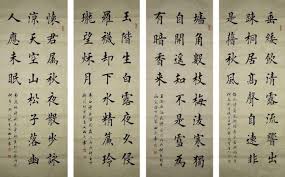 垂緌飲清露流響出
疎桐居高聲自遠非
是藉秋風
墻角數枝梅凌寒獨
自開遙知不是雪為
有暗香來
玉階生白露夜久侵
羅襪却下水精簾玲
瓏望秋月
懷君屬秋夜散步詠
涼天空山松子落幽
人應未眠